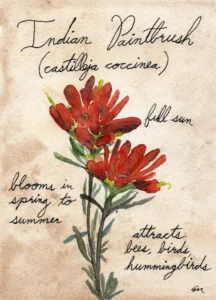 Indian Paintbrush
(castilleja coccinea)
full sun
blooms in
spring to
summer
attracts
bees, birds,
hummingbirds